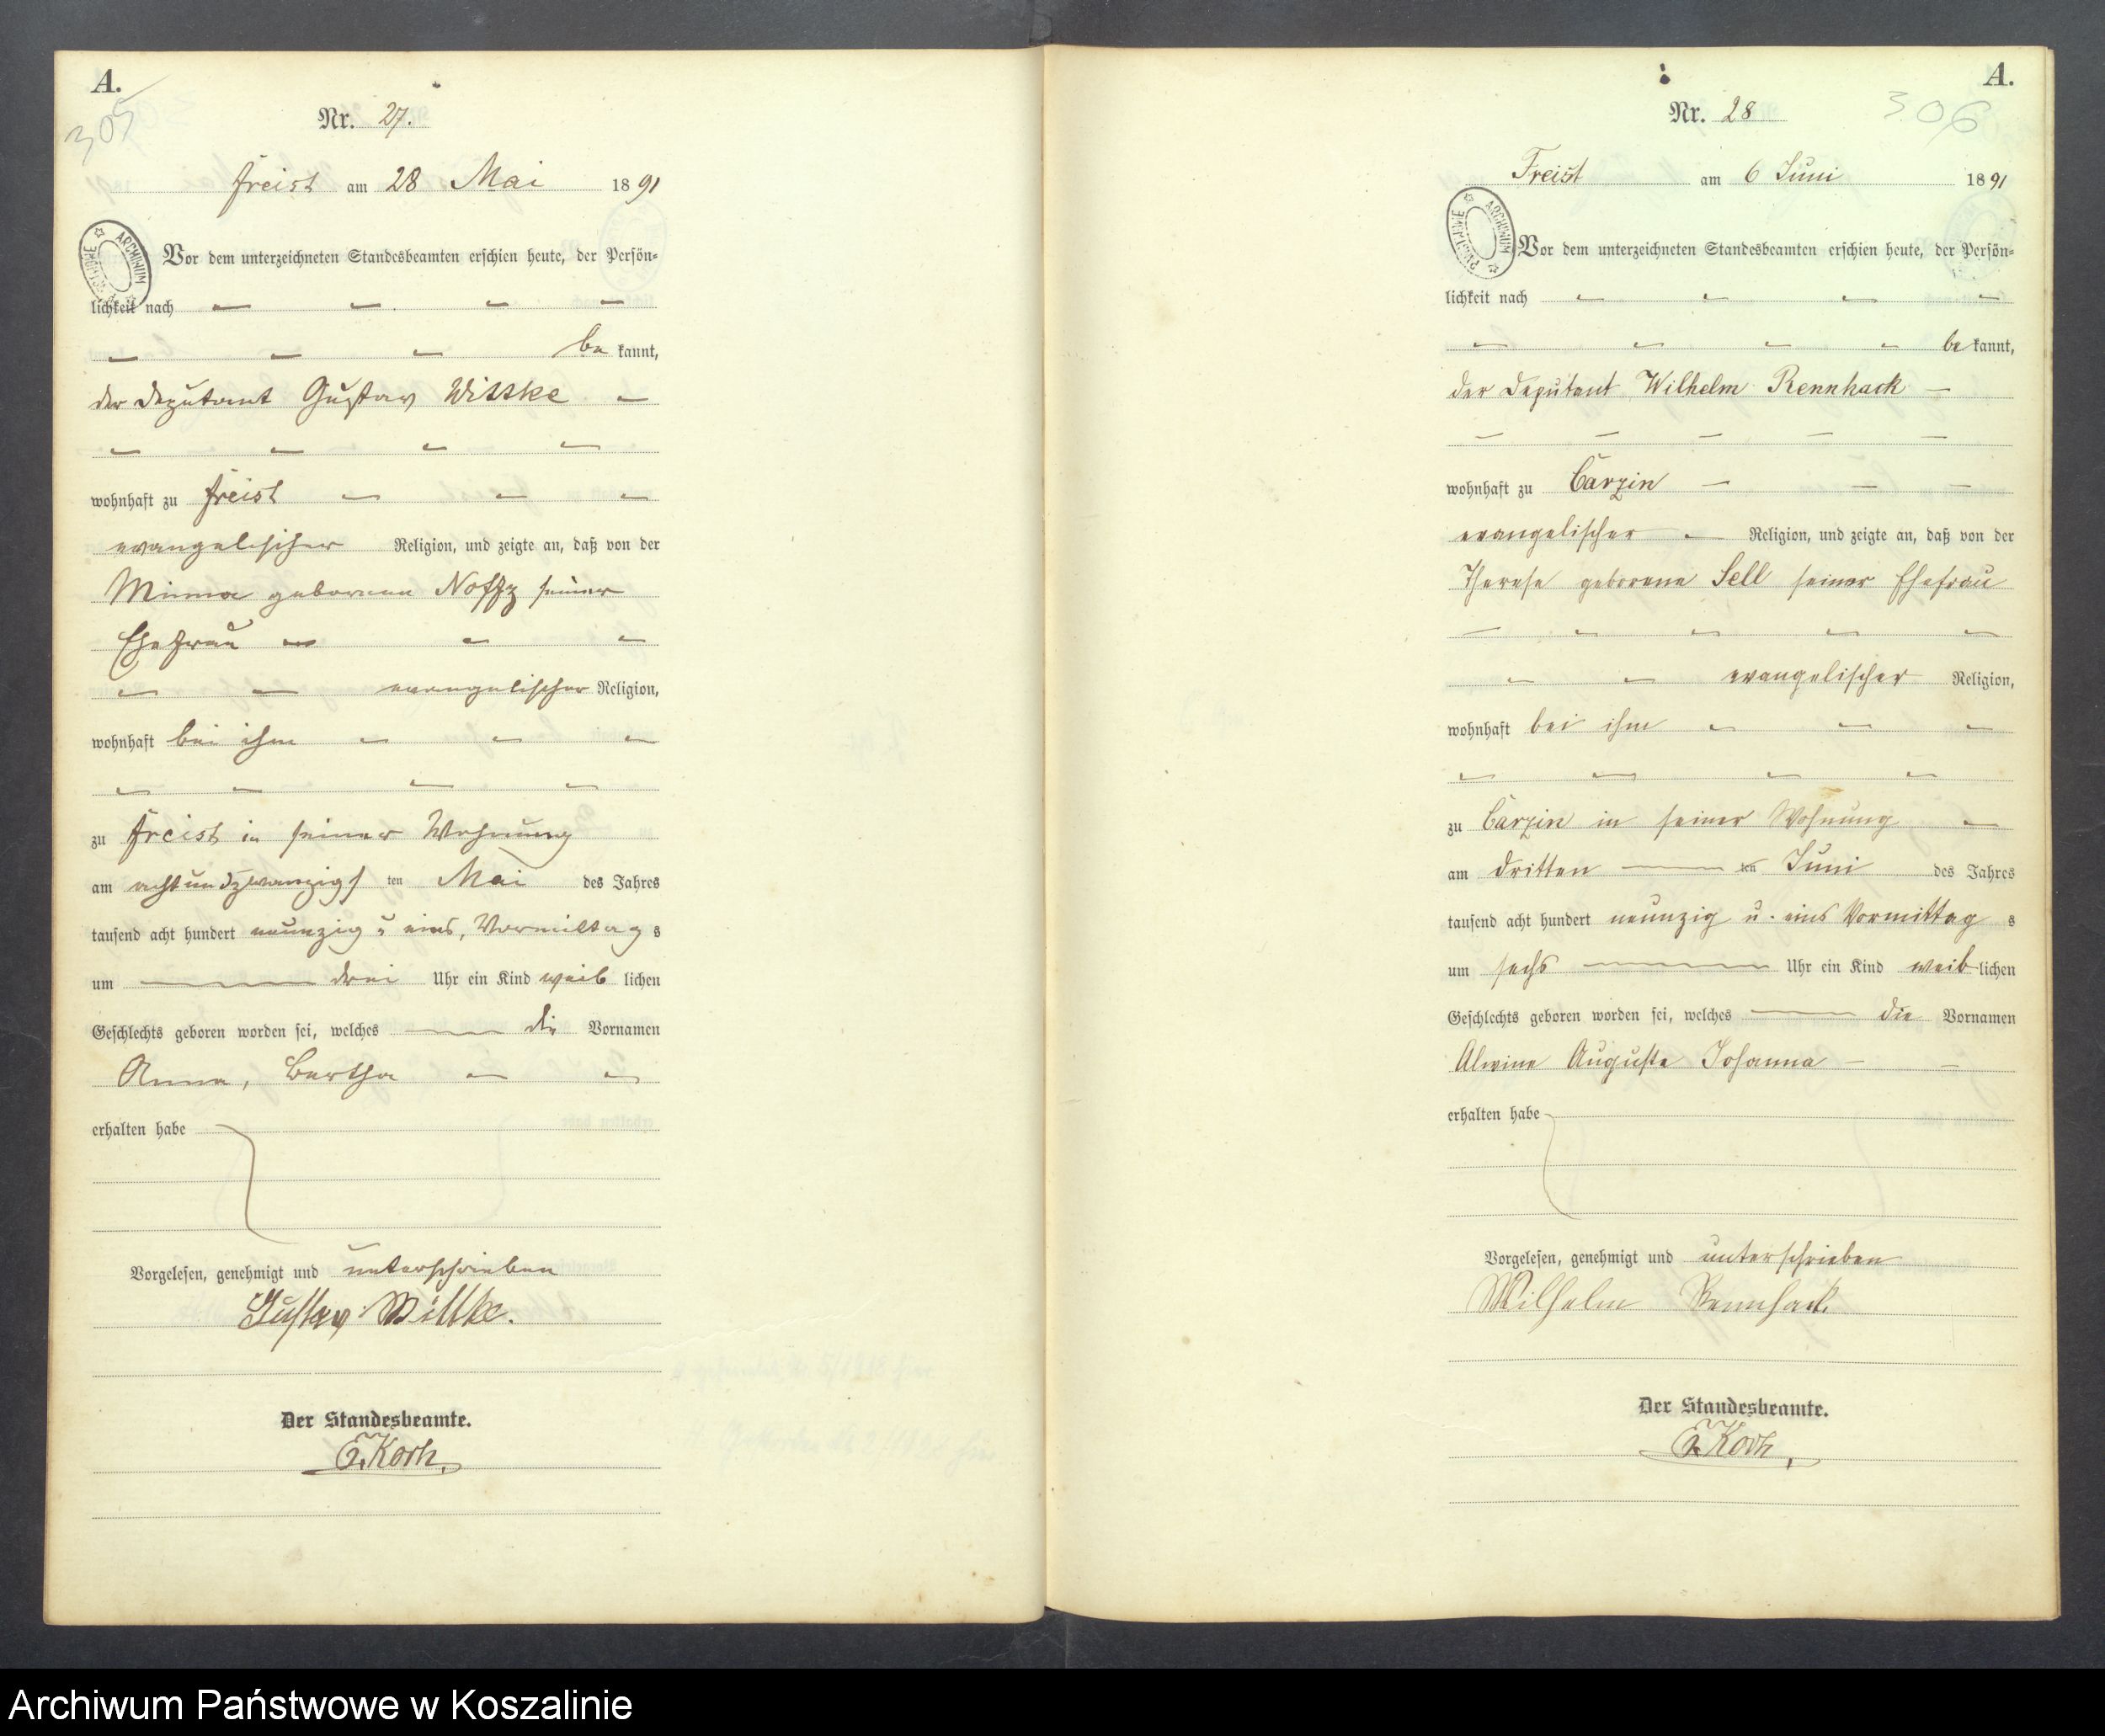 A.
305
Nr. 27.
Freist am 28 Mai 1891
Vor dem unterzeichneten Standesbeamten erschien heute, der Persön=
lichkeit nach
be kannt,
der Deputant Gustav Wittke
wohnhaft zu Freist
evangelischer Religion, und zeigte an, daß von der
Minna geborenen Noffz seiner
Ehefrau
evangelischer Religion,
wohnhaft bei ihm
zu Freist in seiner Wohnung
am achtundzwanzigs ten Mai des Jahres
tausend acht hundert neunzig u eins, Vormittag s
um drei Uhr ein Kind weib lichen
Geschlechts geboren worden sei, welches die Vornamen
Anna, Bertha
erhalten habe
Vorgelesen, genehmigt und unterschrieben
Gustav Wittke.
Der Standesbeamte.
E. Koch.
A.
306
Nr. 28
Freist am 6 Juni 1891
ARCHIWUM PAŃSTWOWE
Vor dem unterzeichneten Standesbeamten erschien heute, der Persön=
lichkeit nach
be kannt,
der Deputant Wilhelm Rennhack
wohnhaft zu Carzin
evangelischer Religion, und zeigte an, daß von der
Therese geborene Sell seiner Ehefrau
evangelischer Religion,
wohnhaft bei ihm
zu Carzin in seiner Wohnung
am dritten ten Juni des Jahres
tausend acht hundert neunzig u. eins Vormittag s
um sechs Uhr ein Kind weib lichen
Geschlechts geboren worden sei, welches die Vornamen
Alwine Auguste Johanna
erhalten habe
Vorgelesen, genehmigt und unterschrieben
Wilhelm Rennhack.
Der Standesbeamte.
E. Koch.
Archiwum Państwowe w Koszalinie